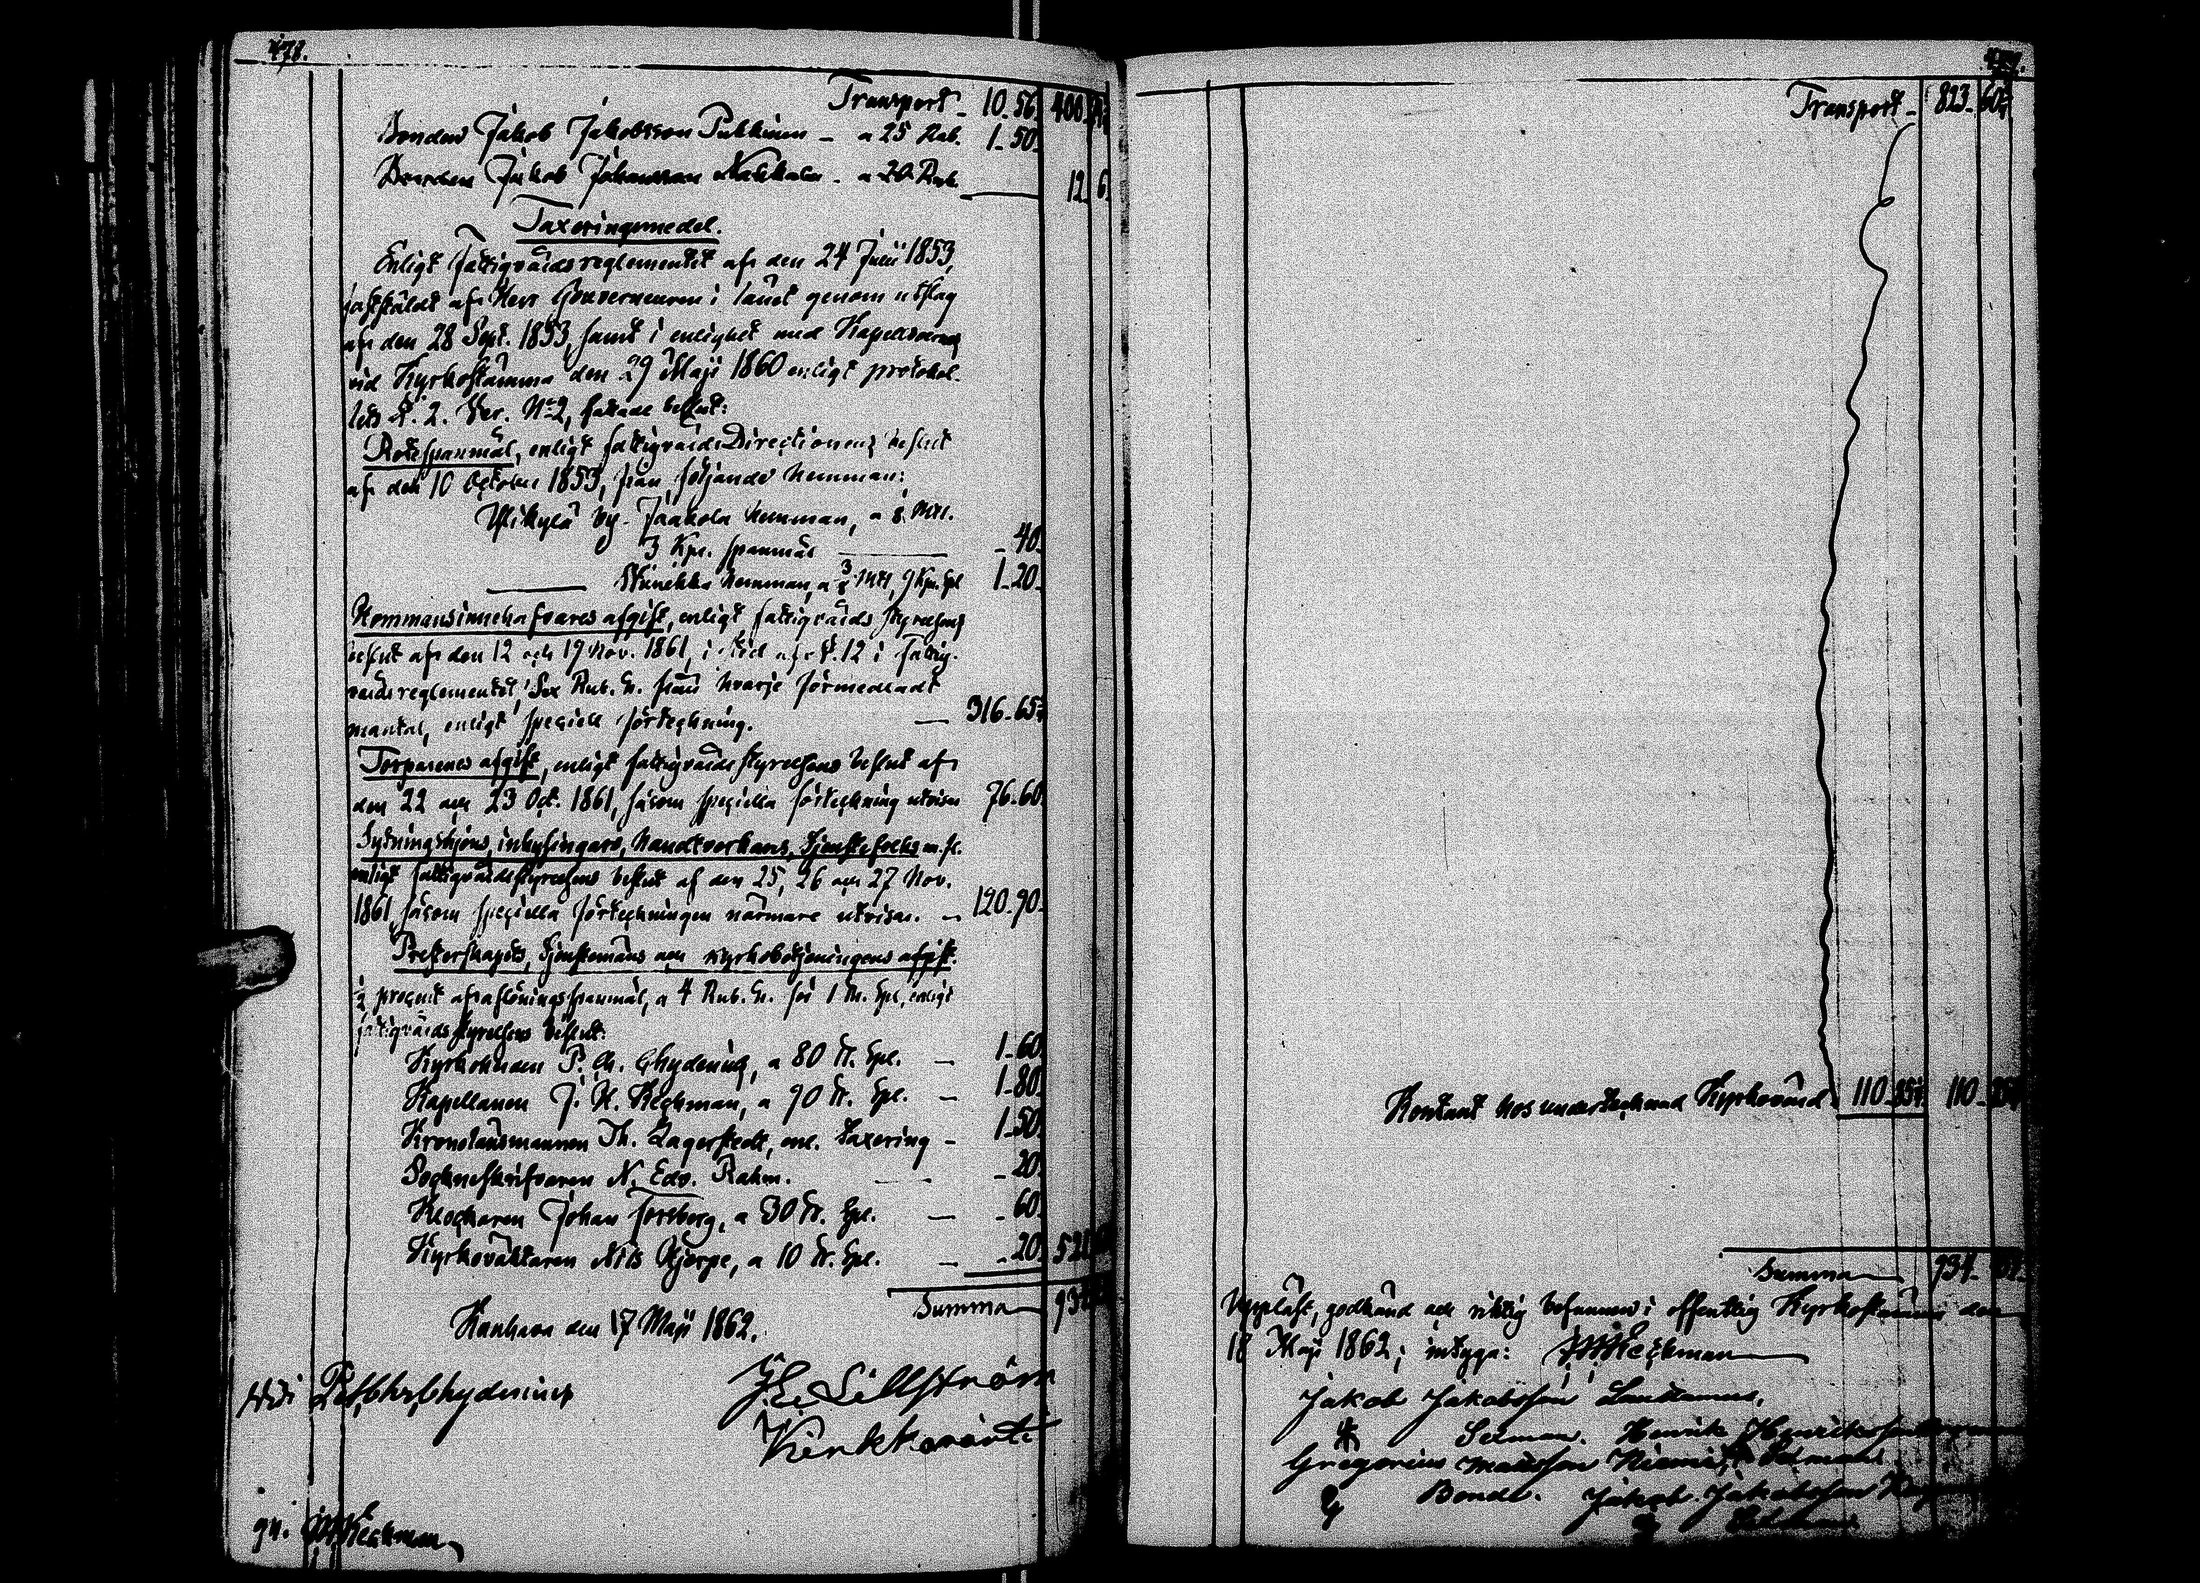 478.
Transport 10.56. 400.
Bonden Jakob Jakobsson Pukkinen – a 25 Rub. 1.50.
Bonden Jakob Johansson – a 20 Rub. 12. 6.
Taxeringsmedel.
Enligt Fattigvårdsreglementet af den 24 Junii 1853,
fastställdt af Herr Gouverneuren i länet genom utslag
af den 28 Sept. 1853, samt i enlighet med
vid Kyrkostämma den 29 Maji 1860 enligt protokol-
lets §. 2. Ver. No 2, fattade beslut:
Rotespanmål, enligt fattigvårdsDirectionens beslut
af den 10 October 1853, från följande hemman:
Ylikylä by. Jaakola hemman, a
3 Kpr. spanmål – 40.
hemman, a 3/8 mtl, 9 Kpr. Spl 1.20.
Hemmansinnehafvares afgift, enligt fattigvårds styrelsens
beslut af den 12 och 19 Nov. 1861, i stöd af §. 12 i Fattig-
vårdsreglementet, Sex Rub. S. från hvarje förmedladt
mantal, enligt speciell förteckning. – 316.65
Torparenes afgift, enligt fattigvårdsstyrelsens beslut af
den 22 och 23 Oct. 1861, såsom speciella förteckning utvisar 76.60.
Sytningshjons, inhysingars, Handtverkares, Tjenstefolks m. fl.
enligt fattigvårdsstyrelsens beslut af den 25, 26 och 27 Nov.
1861, såsom speciella förteckningen närmare utvisar. – 120.90.
Presterskapets, Tjenstemäns och kyrkobetjeningens afgift.
1/2 procent af aflöningsspanmål, a 4 Rub. S. för 1 Tn. Spl, enligt
fattigvårdsstyrelsens beslut:
Kyrkoherden P. Ch. Chydenius, a 80 Tr. Spl. – 1.60.
Kapellanen J. H. Keckman, a 90 Tr. Spl. – 1.80.
Kronolänsmannen Th. Lagerstedt, enl. taxering – 1.50.
Sockneskrifvaren N. Edv. Rahm. – 20.
Klockaren Johan Forsberg, a 30 Tr. Spl. – 60.
Kyrkovaktaren Nils Kjerpe, a 10 Tr. Spl. – 20.
Summa
Kanhava den 17 Maji 1862.
Vidi Pet. Chr. Chydenius
Lillström
Kirkkovärti
Keckman
Transport – 823. 60
Kontant hos undertecknad Kyrkovärd 110. 35 110.
Summa 934.
Uppläst, godkänd och riktig befunnen i offentlig Kyrkostämma den
18 Maji 1862; intyga: Keckman
Jakob Jakobsson
Henrik Henriksson
Gregorius Mattsson
Bonde. Jakob Jakobsson